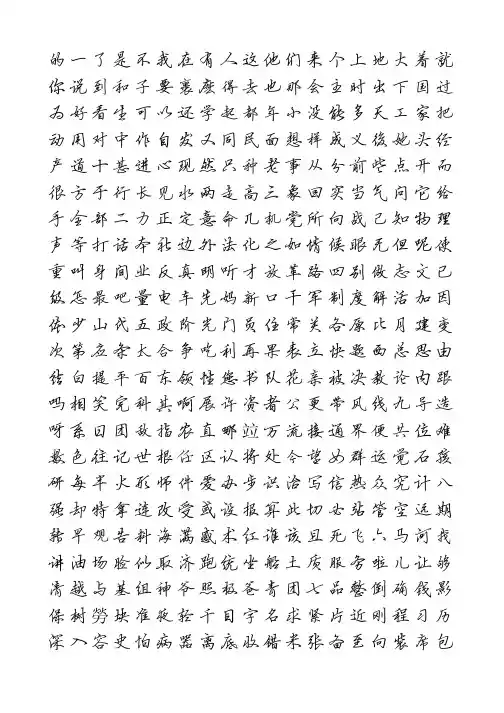 的一了是不我在有人这他们来个上地大着就
你说到和子要裏麼得去也那会主时出下国过
为好看生可以还学起都年小没能多天工家把
动用对中作自发又同民面想样成义後她头经
产道十甚进心现然只种老事从分前些点开而
很方于行长见水两走高三象回实当气问它给
手全部二力正定意命几机党所向战己知物理
声等打话本社边外法化之如情候眼无但呢使
重叫身间业反真明听才放革路四别做志文已
级怎最吧量电车先妈新口干军制度解活加因
依少山代五政阶光门员住常关各原比月建变
次第应条太合争吃利再果表立快题西总思由
结白提平百东领性您书队花亲被决教论内跟
吗相笑完科其啊展许资者公更带风线九导造
呀系日团敌指农直哪並万流接通界便共位难
数色往记世根任区认将处令望女群运觉石孩
研每半火形师件爱办步识治写信热众究计八
强却特拿造改受或设报算此切女站管空运期
转早观告料海满感术红谁该且死飞六马河找
讲油场脸似取济跑统坐船土质服务啦儿让够
清越与基组神爷照极爸青团七品整倒确钱影
保树劳块准夜轻千目字名求紧片近刚程习历
深入容史怕病器离底收错米张备至向装席包